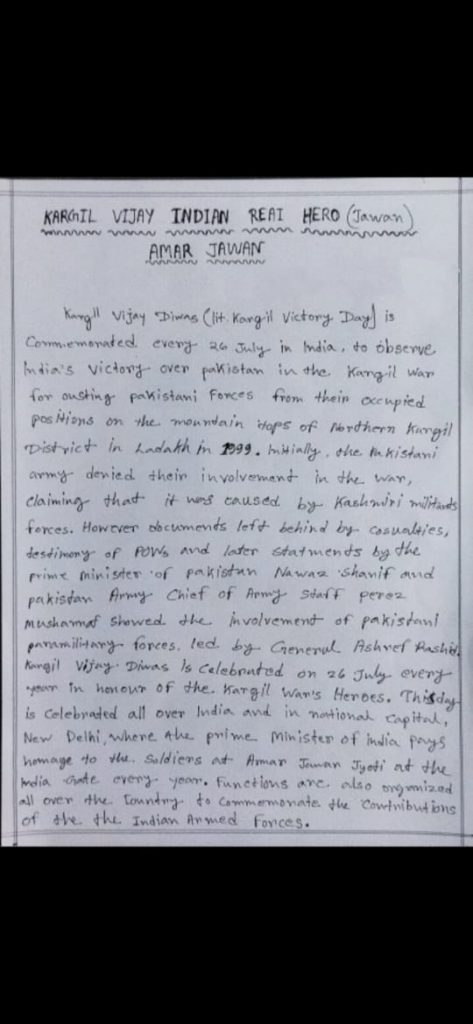 KARGIL VIJAY INDIAN REAl HERO (Jawan)
AMAR JAWAN
Kargil Vijay Diwas (lit. Kargil Victory Day) is
Commemorated every 26 July in India, to observe
India's Victory over pakistan in the Kargil war
for ousting pakistani Forces from their occupied
positions on the mountain tops of Northern Kargil
District in Ladakh in 1999. Initially, the Pakistani
army denied their involvement in the war,
claiming that it was caused by Kashmiri militants
forces. However documents left behind by casualties,
testimony of POWs and later statments by the
prime minister of pakistan Nawaz Sharif and
pakistan Army Chief of Army Staff perez
musharraf showed the involvement of pakistani
paramilitary forces, led by General Ashref Rashid.
Kargil Vijay Diwas is Celebrated on 26 July every
year in honour of the Kargil War's Heroes. This day
is Celebrated all over India and in national Capital,
New Delhi, where the prime Minister of india pays
homage to the soldiers at Amar Jawan Jyoti at the
india Gate every year. Functions are also organized
all over the Country to commemorate the Contributions
of the the Indian Armed Forces.